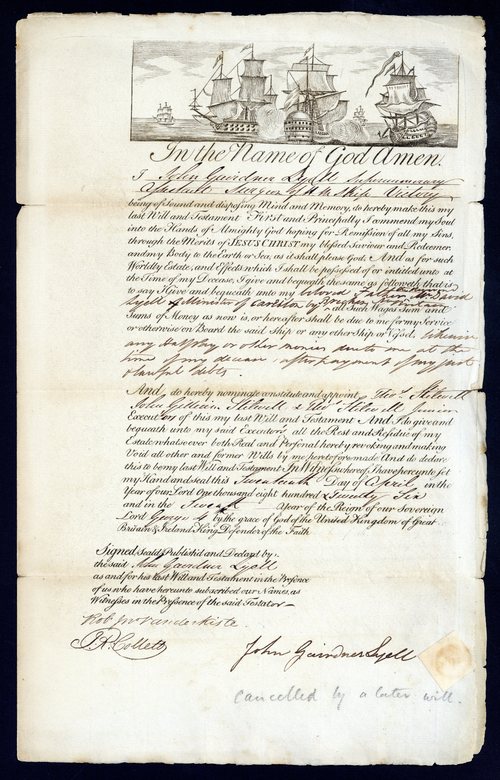 In the Name of God Amen.
I John Gairdner Lyell Supernumerary
Assistant Surgeon of H M Ship Victory
being of sound and disposing Mind and Memory, do hereby make this my
last Will and Testament First and Principally I commend my Soul
into the Hands of Almighty God hoping for Remission of all my Sins
through the Merits of JESUS CHRIST my blessed Saviour and Redeemer
and my Body to the Earth or Sea, as it shall please God. And as for such
Worldly Estate, and Effects which I shall be possessed of or intitled unto at
the Time of my Decease, I give and bequeath the same as followeth that is
to say I Give and bequeath unto my beloved Father, Mr David
Lyell Minister of by all such Wages Sum and
Sums of Money as now is, or hereafter shall be due to me for my Service
or otherwise on Board the said Ship or any other Ship or Vessel.
any half pay or other monies due to me at the
time of my decease, after payment of my just
& lawful debts.
And do hereby nominate constitute and appoint Thos. Stilwell
John Gilliam Stilwell & Thos Stilwell Junior
Executors of this my last Will and Testament And I do give and
bequeath unto my said Executors all the Rest and Residue of my
Estate whatsoever both Real and Personal hereby revoking and making
Void all other and former Wills by me heretofore made And do declare
this to be my last Will and Testament. In Witness whereof I have hereunto set
my Hand and seal this Day of April in the
Year of our Lord One thousand eight hundred & twenty Six
and in the Seventh Year of the Reign of our Sovereign
Lord George 4 by the grace of God of the United Kingdom of Great
Britain & Ireland King, Defender of the Faith
Signed, Seald Publishd and Declard by
the said John Gairdner Lyell
as and for his last Will and Testament in the Presence
of us who have hereunto subscribed our Names, as
Witnesses in the Presence of the said Testator
Rob
Collett
John Gairdner Lyell
cancelled by a later will.